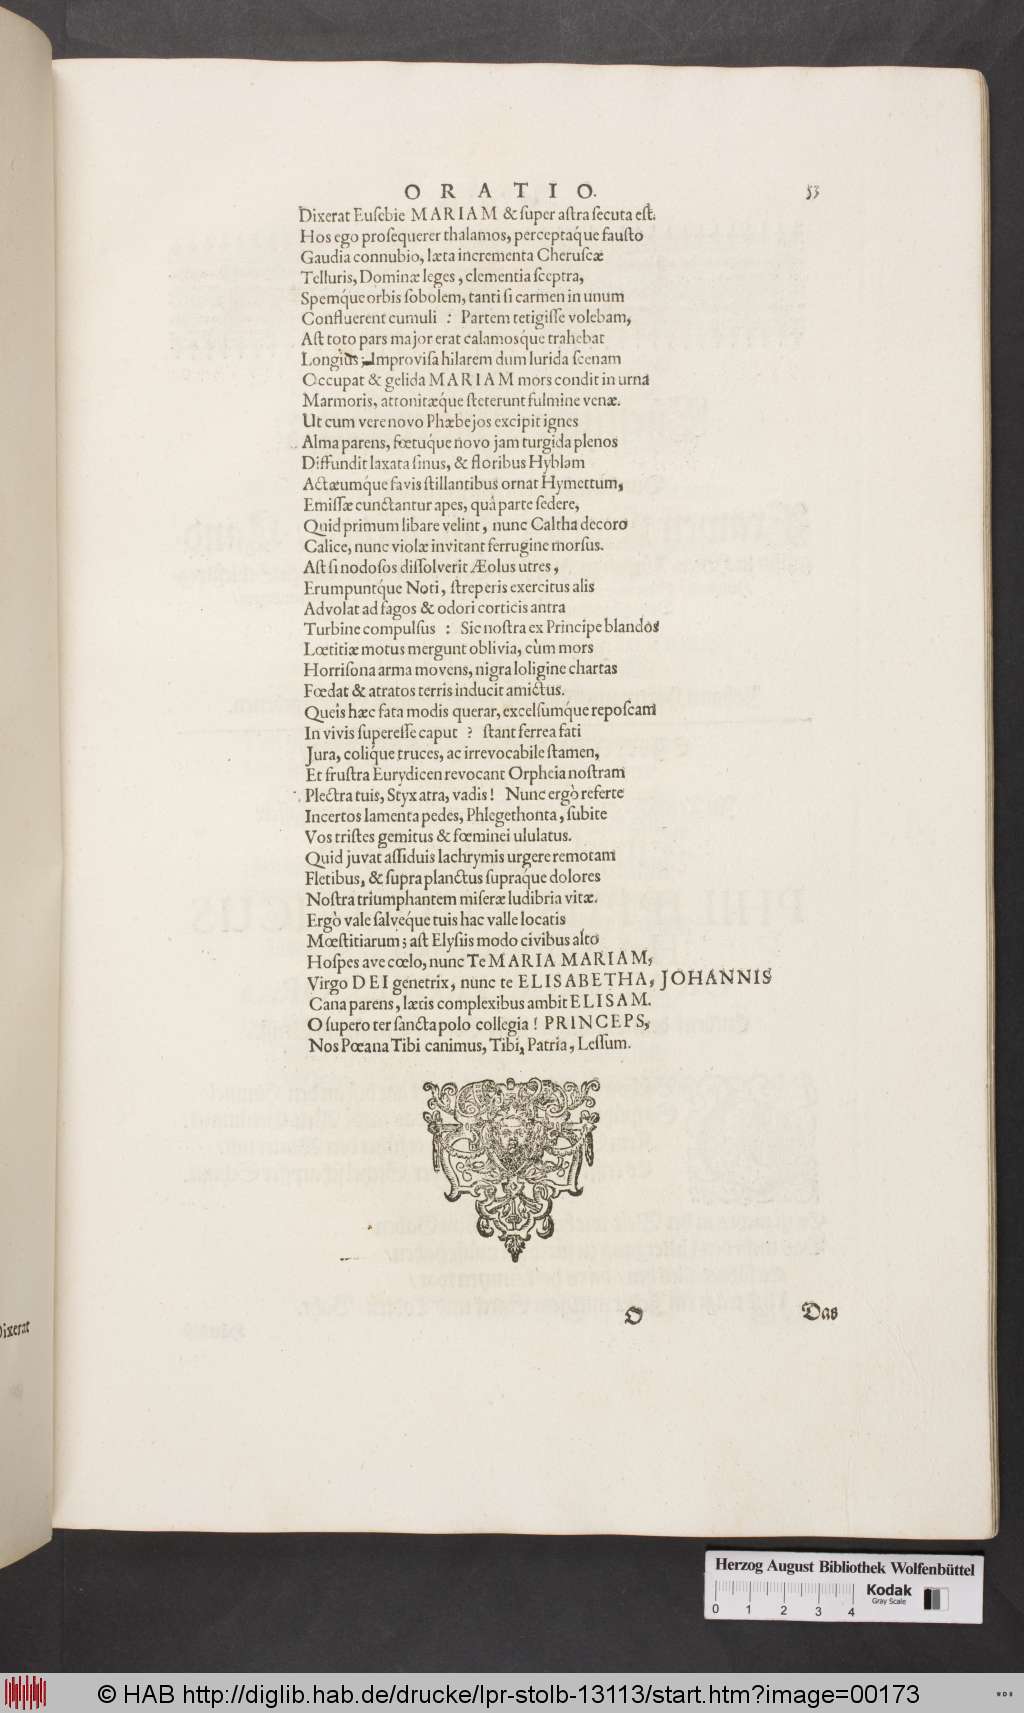 ORATIO. 53
Dixerat Eusebie MARIAM & super astra secuta est.
Hos ego prosequerer thalamos, perceptaq́ue fausto
Gaudia connubio, læta incrementa Cheruscæ
Telluris, Dominæ leges, clementia sceptra,
Spemq́ue orbis sobolem, tanti si carmen in unum
Confluerent cumuli : Partem tetigisse volebam,
Ast toto pars major erat calamosq́ue trahebat
Longiùs; Improvisa hilarem dum lurida scenam
Occupat & gelida MARIAM mors condit in urna
Marmoris, attonitæq́ue steterunt fulmine venæ.
Ut cum vere novo Phæbejos excipit ignes
Alma parens, fœtuq́ue novo jam turgida plenos
Diffundit laxata sinus, & floribus Hyblam
Actæumq́ue favis stillantibus ornat Hymettum,
Emissæ cunctantur apes, quâ parte sedere,
Quid primum libare velint, nunc Caltha decoro
Calice, nunc violæ invitant ferrugine morsus.
Ast si nodosos dissolverit Æolus utres,
Erumpuntq́ue Noti, streperis exercitus alis
Advolat ad fagos & odori corticis antra
Turbine compulsus : Sic nostra ex Principe blandos
Lœtitiæ motus mergunt oblivia, cùm mors
Horrisona arma movens, nigra loligine chartas
Fœdat & atratos terris inducit amictus.
Queîs hæc fata modis querar, excelsumq́ue reposcam
In vivis superesse caput ? stant ferrea fati
Jura, coliq́ue truces, ac irrevocabile stamen,
Et frustra Eurydicen revocant Orpheia nostram
Plectra tuis, Styx atra, vadis! Nunc ergò referte
Incertos lamenta pedes, Phlegethonta, subite
Vos tristes gemitus & fœminei ululatus.
Quid juvat assiduis lachrymis urgere remotam
Fletibus, & supra planctus supraq́ue dolores
Nostra triumphantem miseræ ludibria vitæ.
Ergò vale salveq́ue tuis hac valle locatis
Mœstitiarum; ast Elysiis modo civibus alto
Hospes ave cœlo, nunc Te MARIA MARIAM,
Virgo DEI genetrix, nunc te ELISABETHA, JOHANNIS
Cana parens, lætis complexibus ambit ELISAM.
O supero ter sancta polo collegia! PRINCEPS,
Nos Pœana Tibi canimus, Tibi, Patria, Lessum.
O Das
Dixerat
Herzog August Bibliothek Wolfenbüttel
0 1 2 3 4
Kodak
Gray Scale
© HAB http://diglib.hab.de/drucke/lpr-stolb-13113/start.htm?image=00173